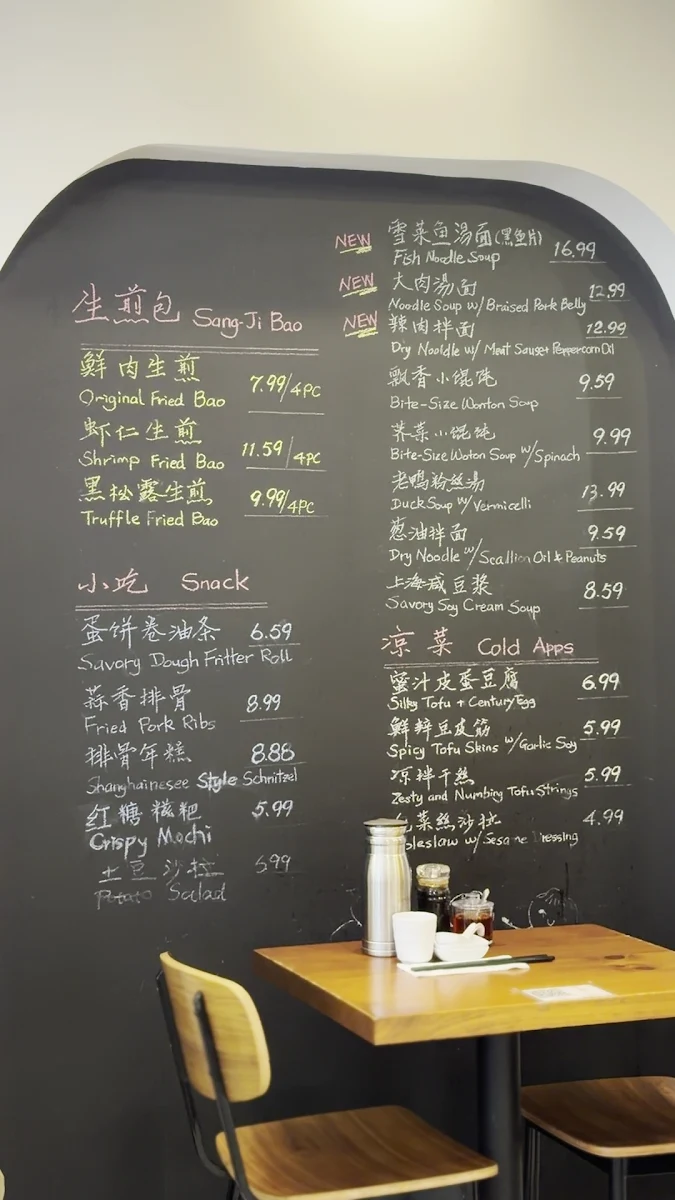 生煎包 Sang-Ji Bao
鲜肉生煎
Original Fried Bao 7.99/4PC
虾仁生煎
Shrimp Fried Bao 11.59/4PC
黑松露生煎
Truffle Fried Bao 9.99/4PC
小吃 Snack
蛋饼卷油条 6.59
Savory Dough Fritter Roll
蒜香排骨 8.99
Fried Pork Ribs
排骨年糕 8.88
Shanghainesee Style Schnitzel
红糖糍粑 5.99
Crispy Mochi
土豆沙拉 5.99
Potato Salad
NEW 雪菜鱼汤面(黑鱼片) 16.99
Fish Noodle Soup
NEW 大肉汤面 12.99
Noodle Soup w/Braised Pork Belly
NEW 辣肉拌面 12.99
Dry Nooldle w/ Meat Sauge+ Peppercorn Oil
飘香小馄饨 9.59
Bite-Size Wonton Soup
荠菜小馄饨 9.99
Bite-Size Woton Soup w/Spinach
老鸭粉丝汤 13.99
Duck Soup w/ Vermicelli
葱油拌面 9.59
Dry Noodle w/Scallion Oil & Peanuts
上海咸豆浆 8.59
Savory Soy Cream Soup
凉菜 Cold Apps
蜜汁皮蛋豆腐 6.99
Silky Tofu + Century Egg
鲜辣豆皮筋 5.99
Spicy Tofu Skins w/Garlic Soy
凉拌干丝 5.99
Zesty and Numbing Tofu Strings
菜丝沙拉 4.99
w/Sesame